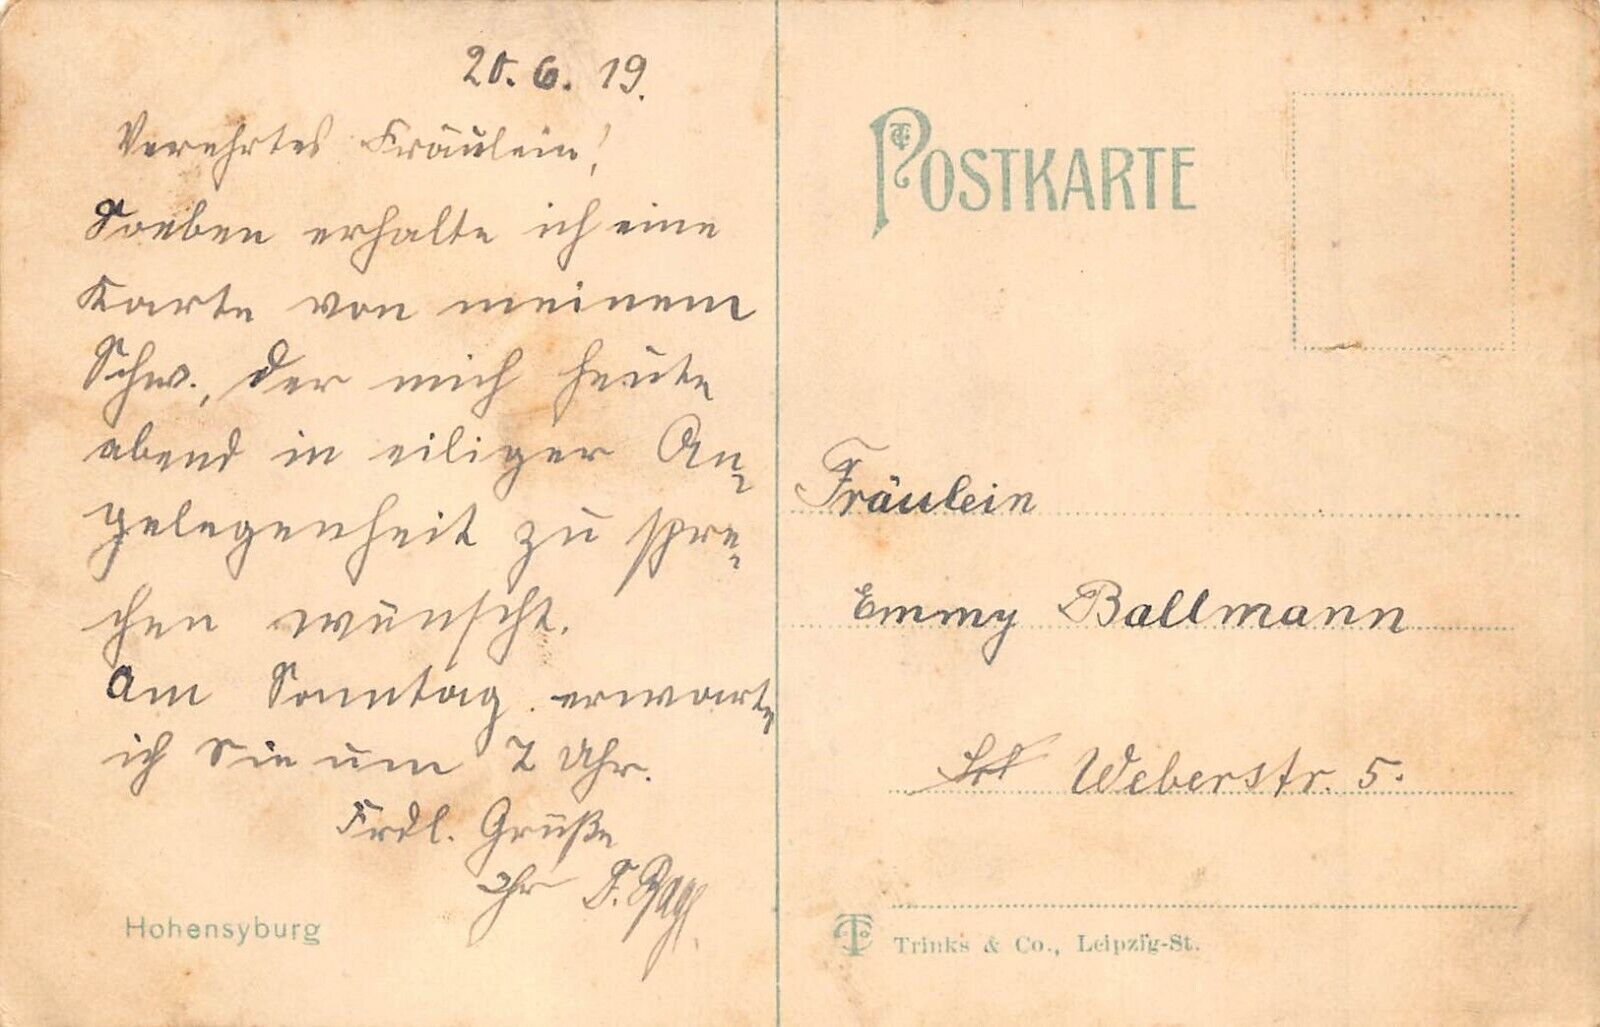 20. 6. 19.
Verehrtes Fräulein!
Soeben erhalte ich eine
Karte von meinem
Schw., der mich heute
abend in eiliger An-
gelegenheit zu spre-
chen wünscht.
Am Sonntag erwarte
ich Sie um 2 Uhr.
Frdl. Grüße
Ihr F.
Hohensyburg
POSTKARTE
Fräulein
Emmy Ballmann
Weberstr. 5.
Trinks & Co., Leipzig-St.